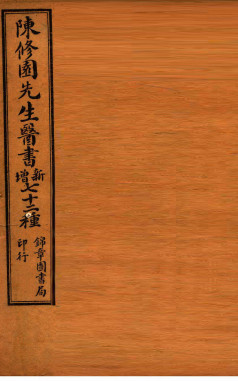 陳修園先生醫書新增七十二種
錦章圖書局
印行